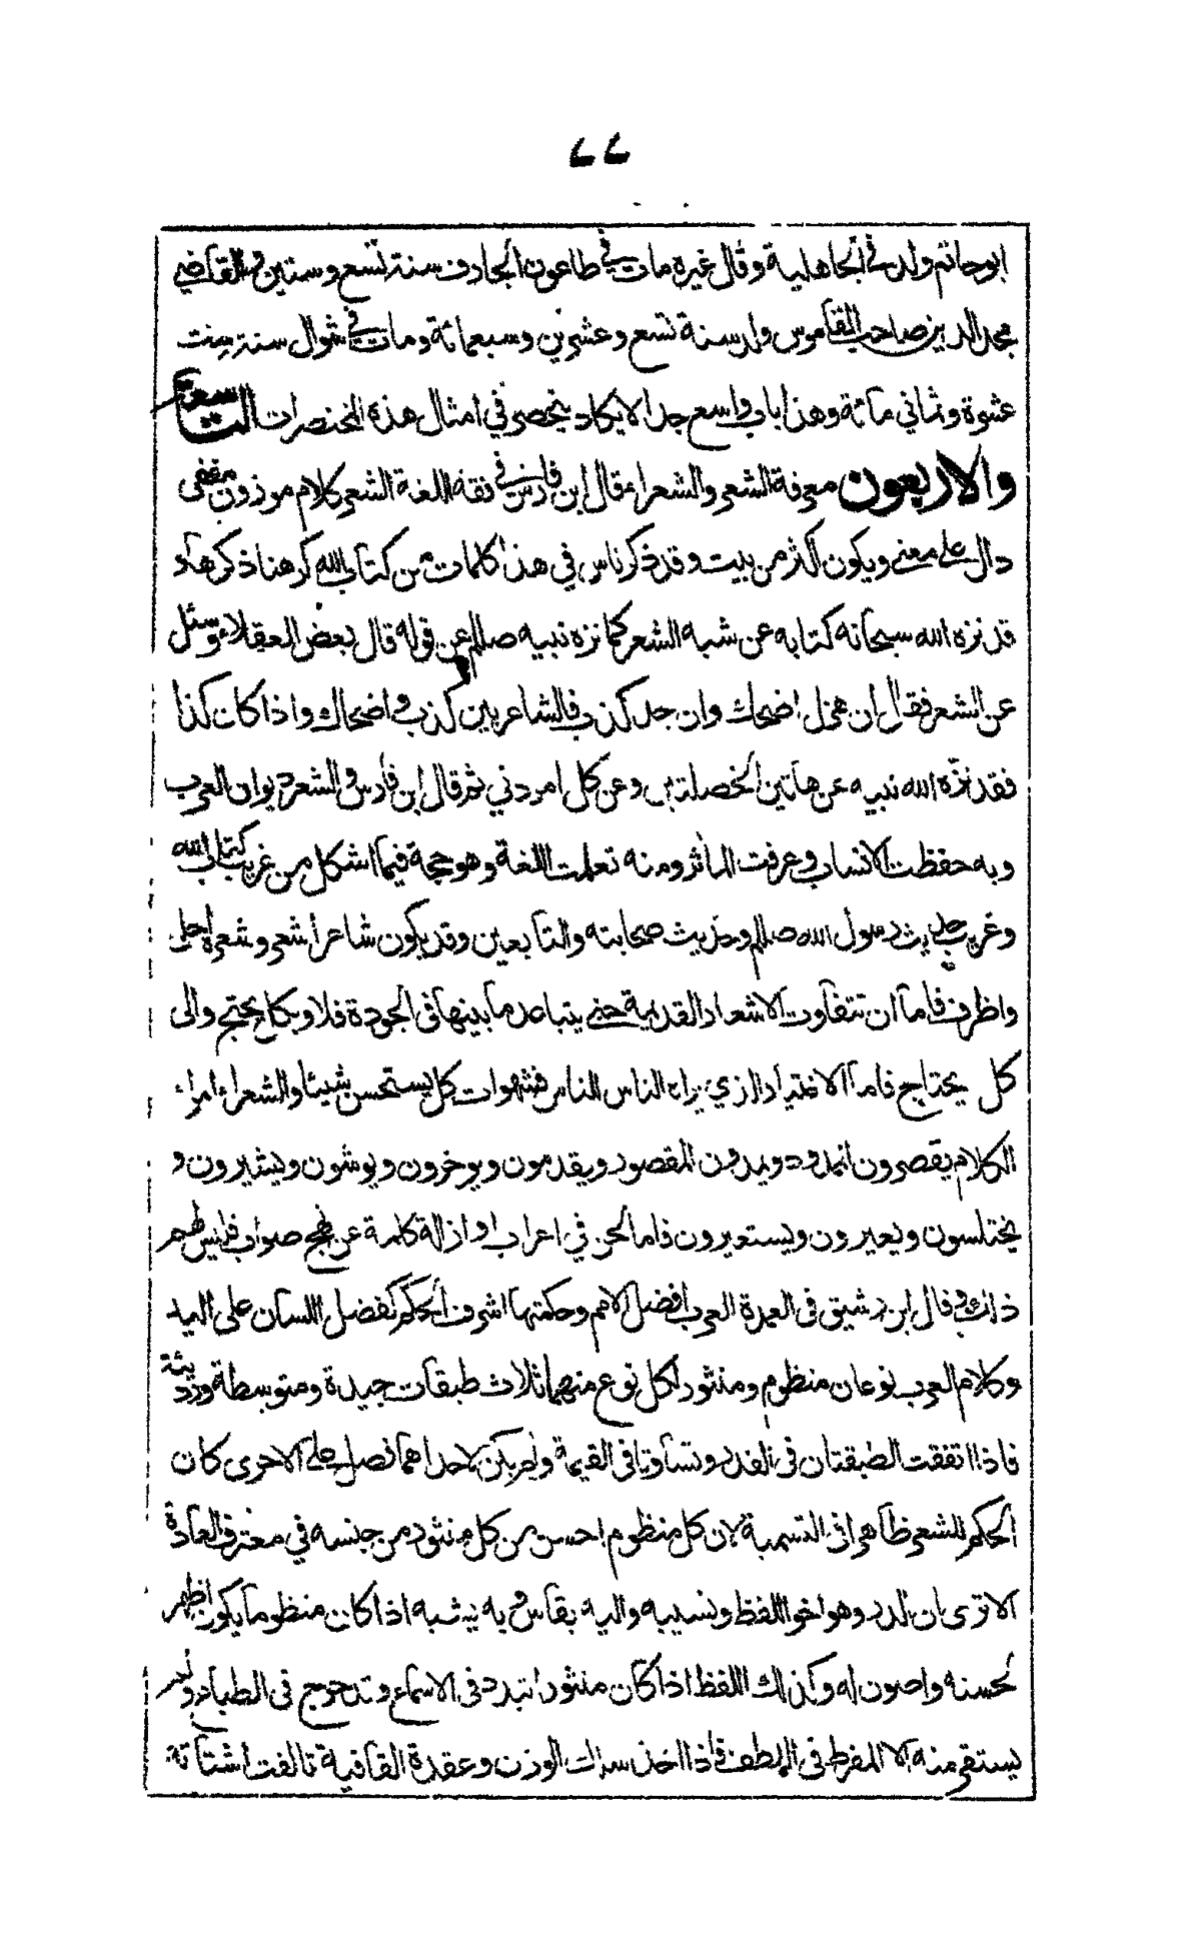 ٢٢
ابوحاتم ولد في الجاهلية وقال غيره مات في طاعون الجارف سنة تسع وستين والقاضي
مجد الدين صاحب القاموس ولد سنة تسع وعشرين وسبعمائة ومات في شوال سنة ست
عشرة وثماني مائة وهذا باب واسع جدا لا يكاد ينحصر في امثال هذه المختصرات التاسعة
والاربعون معرفة الشعر والشعراء قال ابن فارس في فقه اللغة الشعر كلام موزون مقفى
دال على معنى ويكون اكثر من بيت وقد ذكر ناس في هذا كلمات من كتاب الله كرهنا ذكرها و
قد نزه الله سبحانه كتابه عن شبه الشعر كما نزه نبيه صللم عن قوله قال بعض العقلاء وسئل
عن الشعر فقال ان هزل اضحك وان جد كذب فالشاعر بين كذب واضحاك واذا كان كذا
فقد نزّه الله نبيه عن هاتين الخصلتين وعن كل امر دني ثم قال ابن فارس والشعر ديوان العرب
وبه حفظت الانساب وعرفت المآثر ومنه تعلمت اللغة وهو حجة فيما اشكل من غريب كتاب الله
وغريب حديث رسول الله صللم وحديث صحابته والتابعين وقد يكون شاعر اشعر وشعره احلى
واظرف فاما ان تتفاوت الاشعار القديمة حتى يتباعد ما بينها في الجودة فلا وبكل يحتج والى
كل يحتاج فاما الاختيار الذي يراه الناس للناس فشهوات كل يستحسن شيئا والشعراء امراء
الكلام يقصرون الممدود ويمدون المقصور ويقدمون ويوخرون ويومئون ويشيرون و
يختلسون ويعيرون ويستعيرون فاما لحن في اعراب او ازالة كلمة عن نهج صواب فليس لهم
ذلك وقال ابن رشيق في العمدة العرب افضل الامم وحكمتها اشرف الحكم كفضل اللسان على اليد
وكلام العرب نوعان منظوم ومنثور لكل نوع منهما ثلاث طبقات جيدة ومتوسطة وردئية
فاذا اتفقت الطبقتان في القدر وتساوتا في القيمة ولم يكن لاحداهما فضل على الاخرى كان
الحكم للشعر ظاهرا في التسمية لان كل منظوم احسن من كل منثور من جنسه في معترف العادة
الا ترى ان الدر وهو اخو اللفظ ونسيبه واليه يقاس وبه يشبه اذا كان منظوما يكون اظهر
لحسنه واصون له وكذلك اللفظ اذا كان منثورا تبدد في الاسماع وتدحرج في الطباع ولم
يستقر منه الا المفرط في اللطف فاذا اخذ سلك الوزن وعقدة القافية تالفت اشتاته